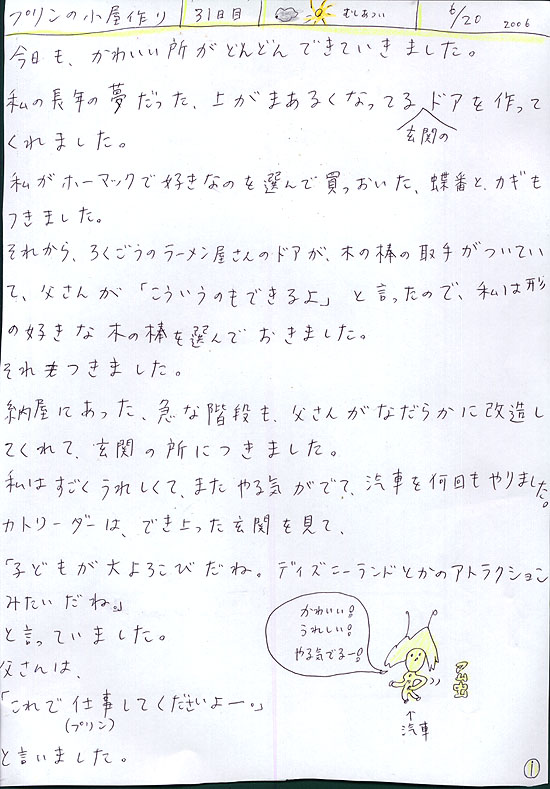 プリンの小屋作り 31日目 むしあつい 6/20 2006
今日も、かわいい所がどんどんできていきました。
私の長年の夢だった、上がまあるくなってるドアを作って
玄関の
くれました。
私がホーマックで好きなのを選んで買っおいた、蝶番と、カギも
つきました。
それから、ろくごうのラーメン屋さんのドアが、木の棒の取手がついてい
て、父さんが「こういうのもできるよ」と言ったので、私は形
の好きな木の棒を選んでおきました。
それもつきました。
納屋にあった、急な階段も、父さんがなだらかに改造し
てくれて、玄関の所につきました。
私はすごくうれしくて、またやる気がでて、汽車を何回もやりました。
カトリーダーは、でき上った玄関を見て、
「子どもが大よろこびだね。ディズニーランドとかのアトラクション
みたいだね。」
と言っていました。
父さんは、
「これで仕事してくださいよー。」
(プリン)
と言いました。
かわいい!
うれしい!
やる気でるー!
↑
汽車
1